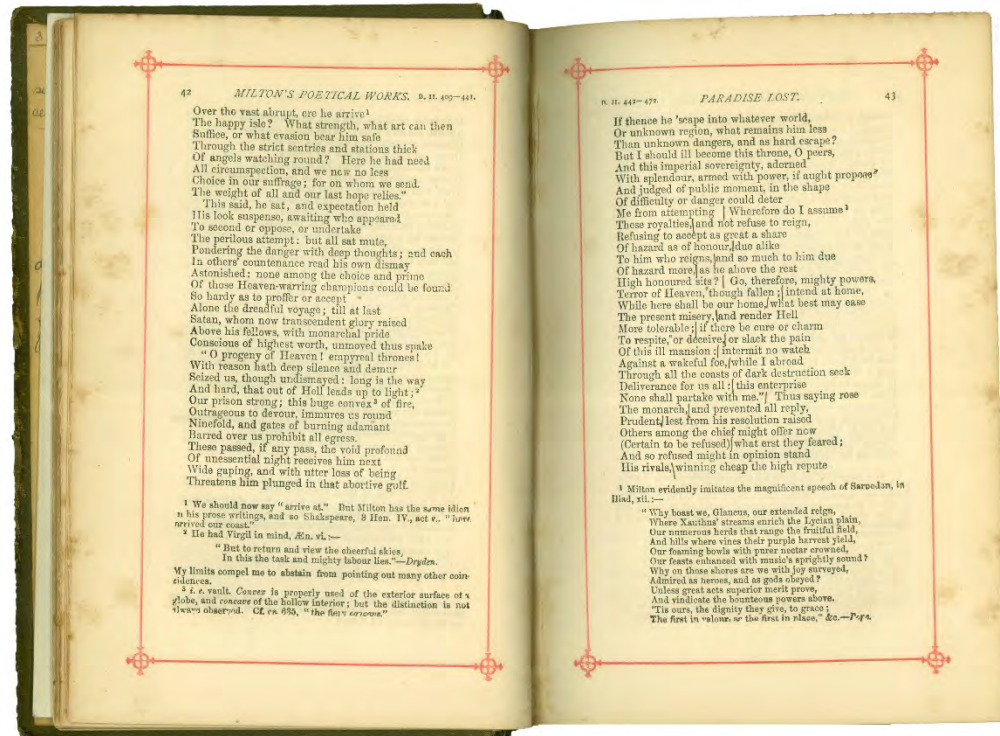 42 MILTON'S POETICAL WORKS. B. II. 409—441.
Over the vast abrupt, ere he arrive¹
The happy isle? What strength, what art can then
Suffice, or what evasion bear him safe
Through the strict sentries and stations thick
Of angels watching round? Here he had need
All circumspection, and we now no less
Choice in our suffrage; for on whom we send.
The weight of all and our last hope relies."
This said, he sat, and expectation held
His look suspense, awaiting who appeared
To second or oppose, or undertake
The perilous attempt: but all sat mute,
Pondering the danger with deep thoughts; and each
In others' countenance read his own dismay
Astonished: none among the choice and prime
Of those Heaven-warring champions could be found
So hardy as to proffer or accept
Alone the dreadful voyage; till at last
Satan, whom now transcendent glory raised
Above his fellows, with monarchal pride
Conscious of highest worth, unmoved thus spake
"O progeny of Heaven! empyreal thrones!
With reason hath deep silence and demur
Seized us, though undismayed: long is the way
And hard, that out of Hell leads up to light;²
Our prison strong; this huge convex³ of fire,
Outrageous to devour, immures us round
Ninefold, and gates of burning adamant
Barred over us prohibit all egress.
These passed, if any pass, the void profound
Of unessential night receives him next
Wide gaping, and with utter loss of being
Threatens him plunged in that abortive gulf.
¹ We should now say "arrive at." But Milton has the same idiom
n his prose writings, and so Shakspeare, 3 Hen. IV., act v.. "have
arrived our coast."
² He had Virgil in mind, Æn. vi.:—
"But to return and view the cheerful skies,
In this the task and mighty labour lies."—Dryden.
My limits compel me to abstain from pointing out many other coin-
cidences.
³ i. e. vault. Convex is properly used of the exterior surface of a
globe, and concave of the hollow interior; but the distinction is not
always observed. Cf. 635, "the fiery concave."
B. II. 442—472. PARADISE LOST. 43
If thence he 'scape into whatever world,
Or unknown region, what remains him less
Than unknown dangers, and as hard escape?
But I should ill become this throne, O peers,
And this imperial sovereignty, adorned
With splendour, armed with power, if aught proposed
And judged of public moment, in the shape
Of difficulty or danger could deter
Me from attempting | Wherefore do I assume¹
These royalties, and not refuse to reign,
Refusing to accept as great a share
Of hazard as of honour, due alike
To him who reigns, and so much to him due
Of hazard more, as he above the rest
High honoured sits? | Go, therefore, mighty powers,
Terror of Heaven, though fallen; intend at home,
While here shall be our home, what best may ease
The present misery, and render Hell
More tolerable; if there be cure or charm
To respite, or deceive, or slack the pain
Of this ill mansion: intermit no watch
Against a wakeful foe, while I abroad
Through all the coasts of dark destruction seek
Deliverance for us all: this enterprise
None shall partake with me." | Thus saying rose
The monarch, and prevented all reply,
Prudent, lest from his resolution raised
Others among the chief might offer now
(Certain to be refused) what erst they feared;
And so refused might in opinion stand
His rivals, winning cheap the high repute
¹ Milton evidently imitates the magnificent speech of Sarpedon, in
Iliad, xii.:—
"Why boast we, Glaucus, our extended reign,
Where Xanthus' streams enrich the Lycian plain,
Our numerous herds that range the fruitful field,
And hills where vines their purple harvest yield,
Our foaming bowls with purer nectar crowned,
Our feasts enhanced with music's sprightly sound?
Why on those shores are we with joy surveyed,
Admired as heroes, and as gods obeyed?
Unless great acts superior merit prove,
And vindicate the bounteous powers above.
'Tis ours, the dignity they give, to grace;
The first in valour, as the first in place," &c.—Pope.